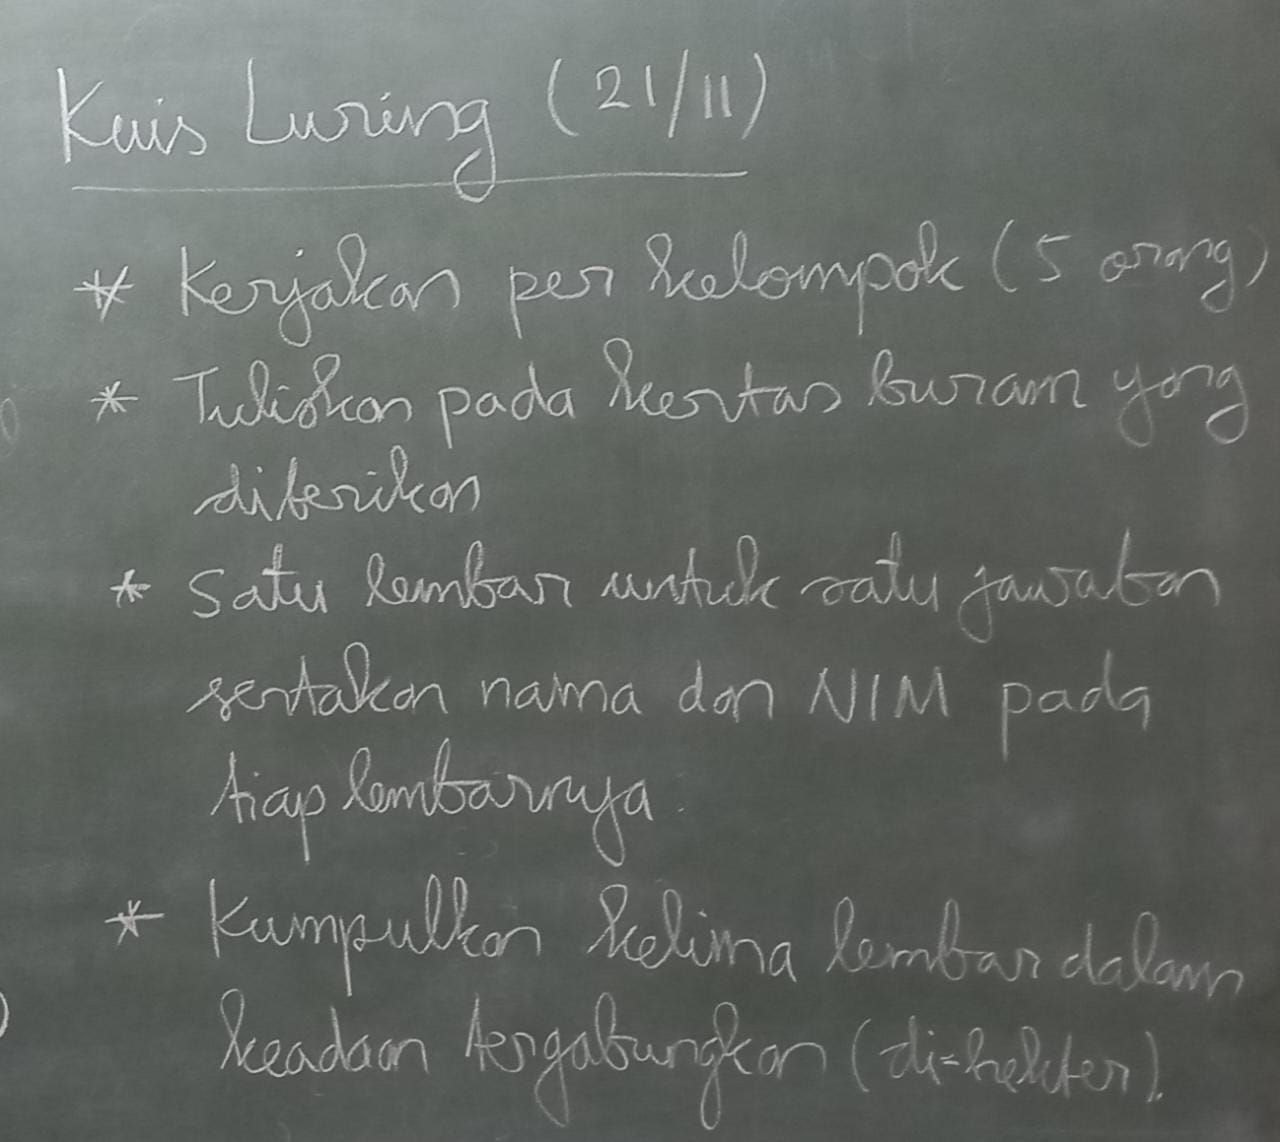 Kuis Luring (21/11)
* Kerjakan per kelompok (5 orang)
* Tuliskan pada kertas buram yang
diberikan
* Satu lembar untuk satu jawaban
sertakan nama dan NIM pada
tiap lembarnya.
* Kumpulkan kelima lembar dalam
keadaan tergabungkan (di-hekter).